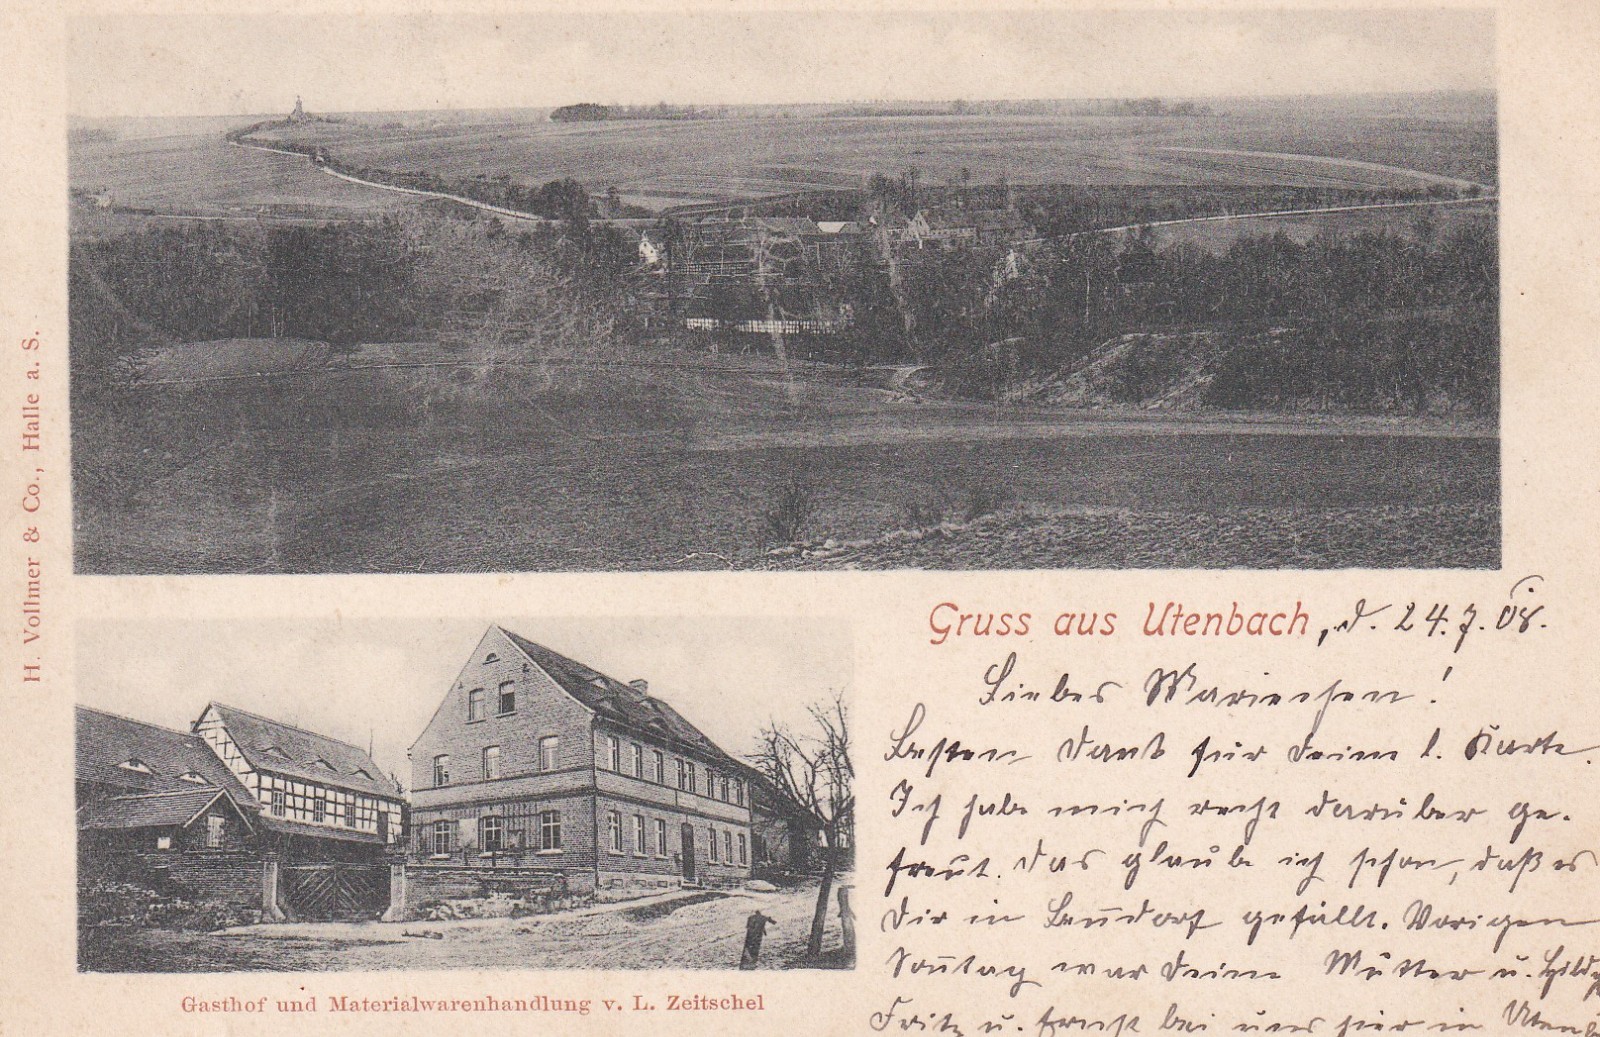 H. Vollmer & Co., Halle a. S.
Gruss aus Utenbach, d. 24.7.08.
Liebes Mariechen!
Besten Dank für deine l. Karte.
Ich habe mich recht darüber ge-
freut. Das glaube ich schon, daß es
dir in gefällt. Vorigen
Sonntag war deine Mutter u.
Fritz u. Ernst bei uns hier in
Gasthof und Materialwarenhandlung v. L. Zeitschel